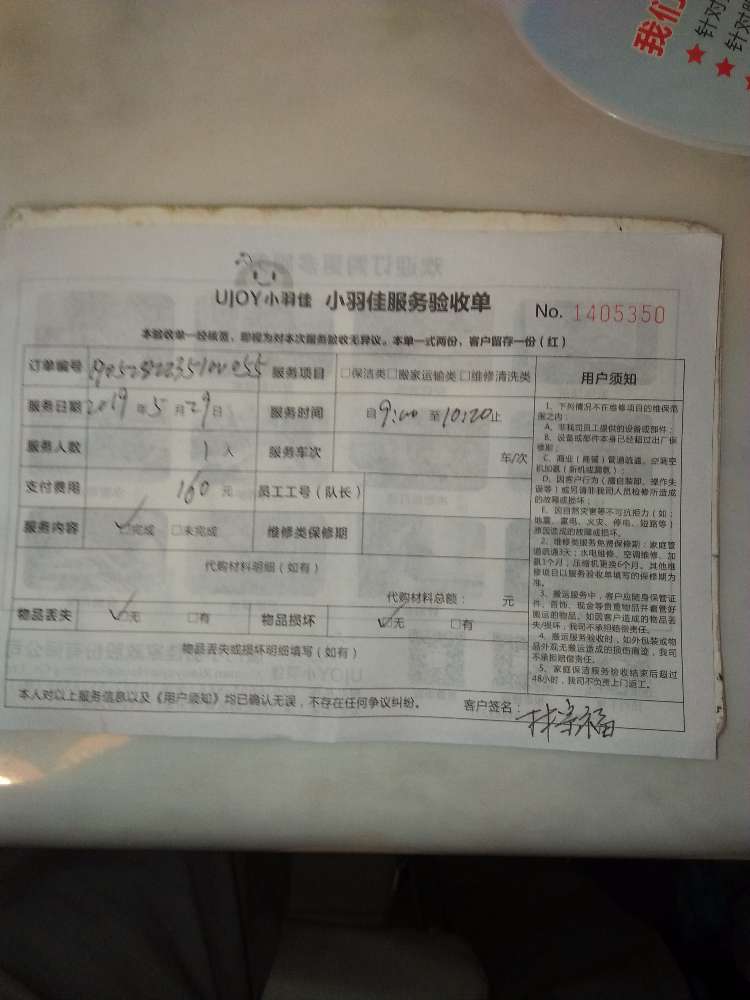 我们
针对
针对
UJOY小羽佳 小羽佳服务验收单 No. 1405350
本验收单一经核签，即视为对本次服务验收无异议。本单一式两份，客户留存一份（红）
订单编号 服务项目 □保洁类□搬家运输类□维修清洗类 用户须知
服务日期 2019年5月29日 服务时间 自9:00至10:20止
服务人数 1人 服务车次 车/次
支付费用 160元 员工工号（队长）
服务内容 ☑完成 □未完成 维修类保修期
代购材料明细（如有）
代购材料总额： 元
物品丢失 ☑无 □有 物品损坏 ☑无 □有
物品丢失或损坏明细填写（如有）
本人对以上服务信息以及《用户须知》均已确认无误，不存在任何争议纠纷。 客户签名：林宗福
1、下列情况不在维修项目的维保范
围之内：
A、非我司员工提供的设备或部件；
B、设备或部件本身已经超过出厂保
修期；
C、商业（商铺）管道疏通、空调空
机加氟（新机或漏氟）；
D、因客户行为（擅自装卸、操作失
误等）或另请非我司人员检修所造成
的故障或损坏；
E、因自然灾害等不可抗拒力（如：
地震、雷电、火灾、停电、短路等）
原因造成的故障或损坏。
2、维修类服务免费保修期：家庭管
道疏通3天；水电维修、空调维修、加
氟1个月，压缩机更换6个月。其他维
修项目以服务验收单填写的保修期为
准。
3、搬运服务中，客户应随身保管证
件、首饰、现金等贵重物品并看管好
搬运的物品。如因客户造成的物品丢
失/损坏，我司不承担赔偿责任。
4、搬运服务验收时，如外包装或物
品外观无搬运造成的损伤痕迹，我司
不承担赔偿责任。
5、家庭保洁服务验收结束后超过
48小时，我司不负责上门返工。